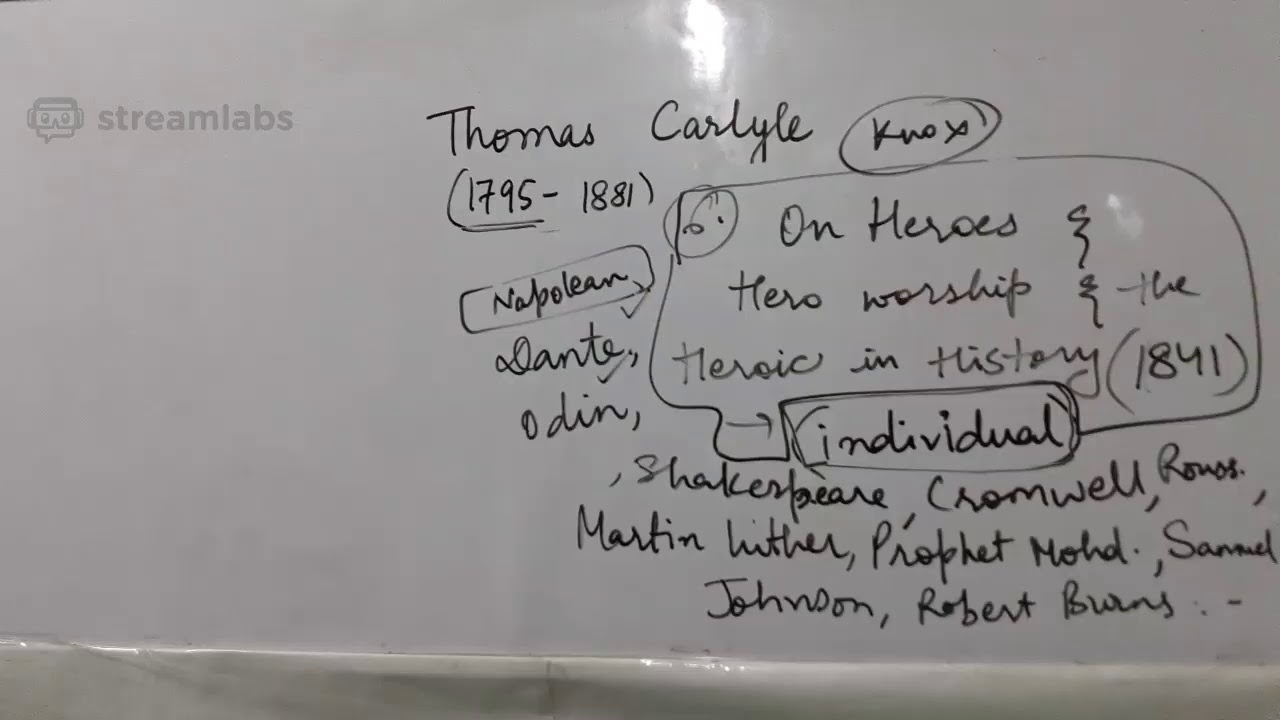 streamlabs
Thomas Carlyle Knox
(1795 - 1881)
6. On Heroes &
Hero worship & the
Heroic in History (1841)
Napolean
Dante,
Odin,
→ (individual)
, Shakerpeare, Cromwell, Rouss. ,
Martin luther, Prophet Mohd. , Samuel
Johnson, Robert Burns . . -